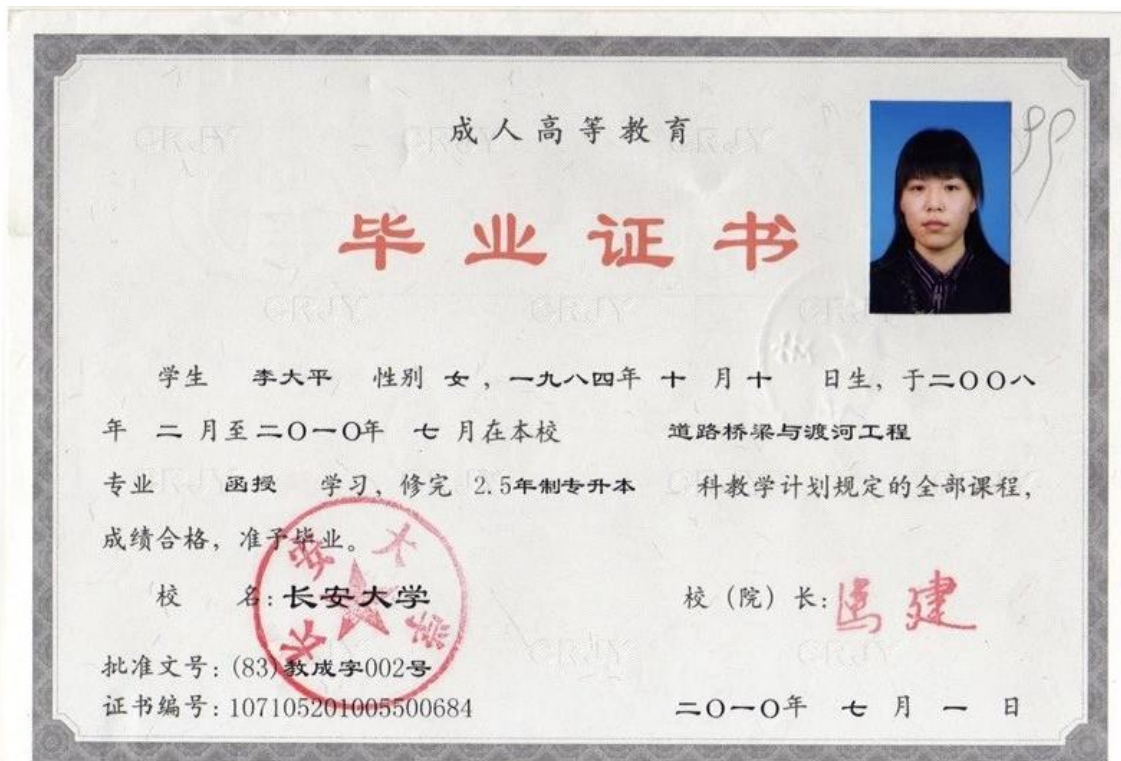 成人高等教育
毕业证书
学生 李大平 性别 女，一九八四年 十 月 十 日生，于二〇〇八
年 二 月至二〇一〇年 七 月在本校 道路桥梁与渡河工程
专业 函授 学习，修完 2.5年制专升本 科教学计划规定的全部课程，
成绩合格，准予毕业。
校 名：长安大学
校（院）长：
批准文号：(83)教成字002号
证书编号：107105201005500684
二〇一〇年 七 月 一 日
长安大学
CRJY
CRJY
CRJY
CRJY
CRJY
CRJY
99